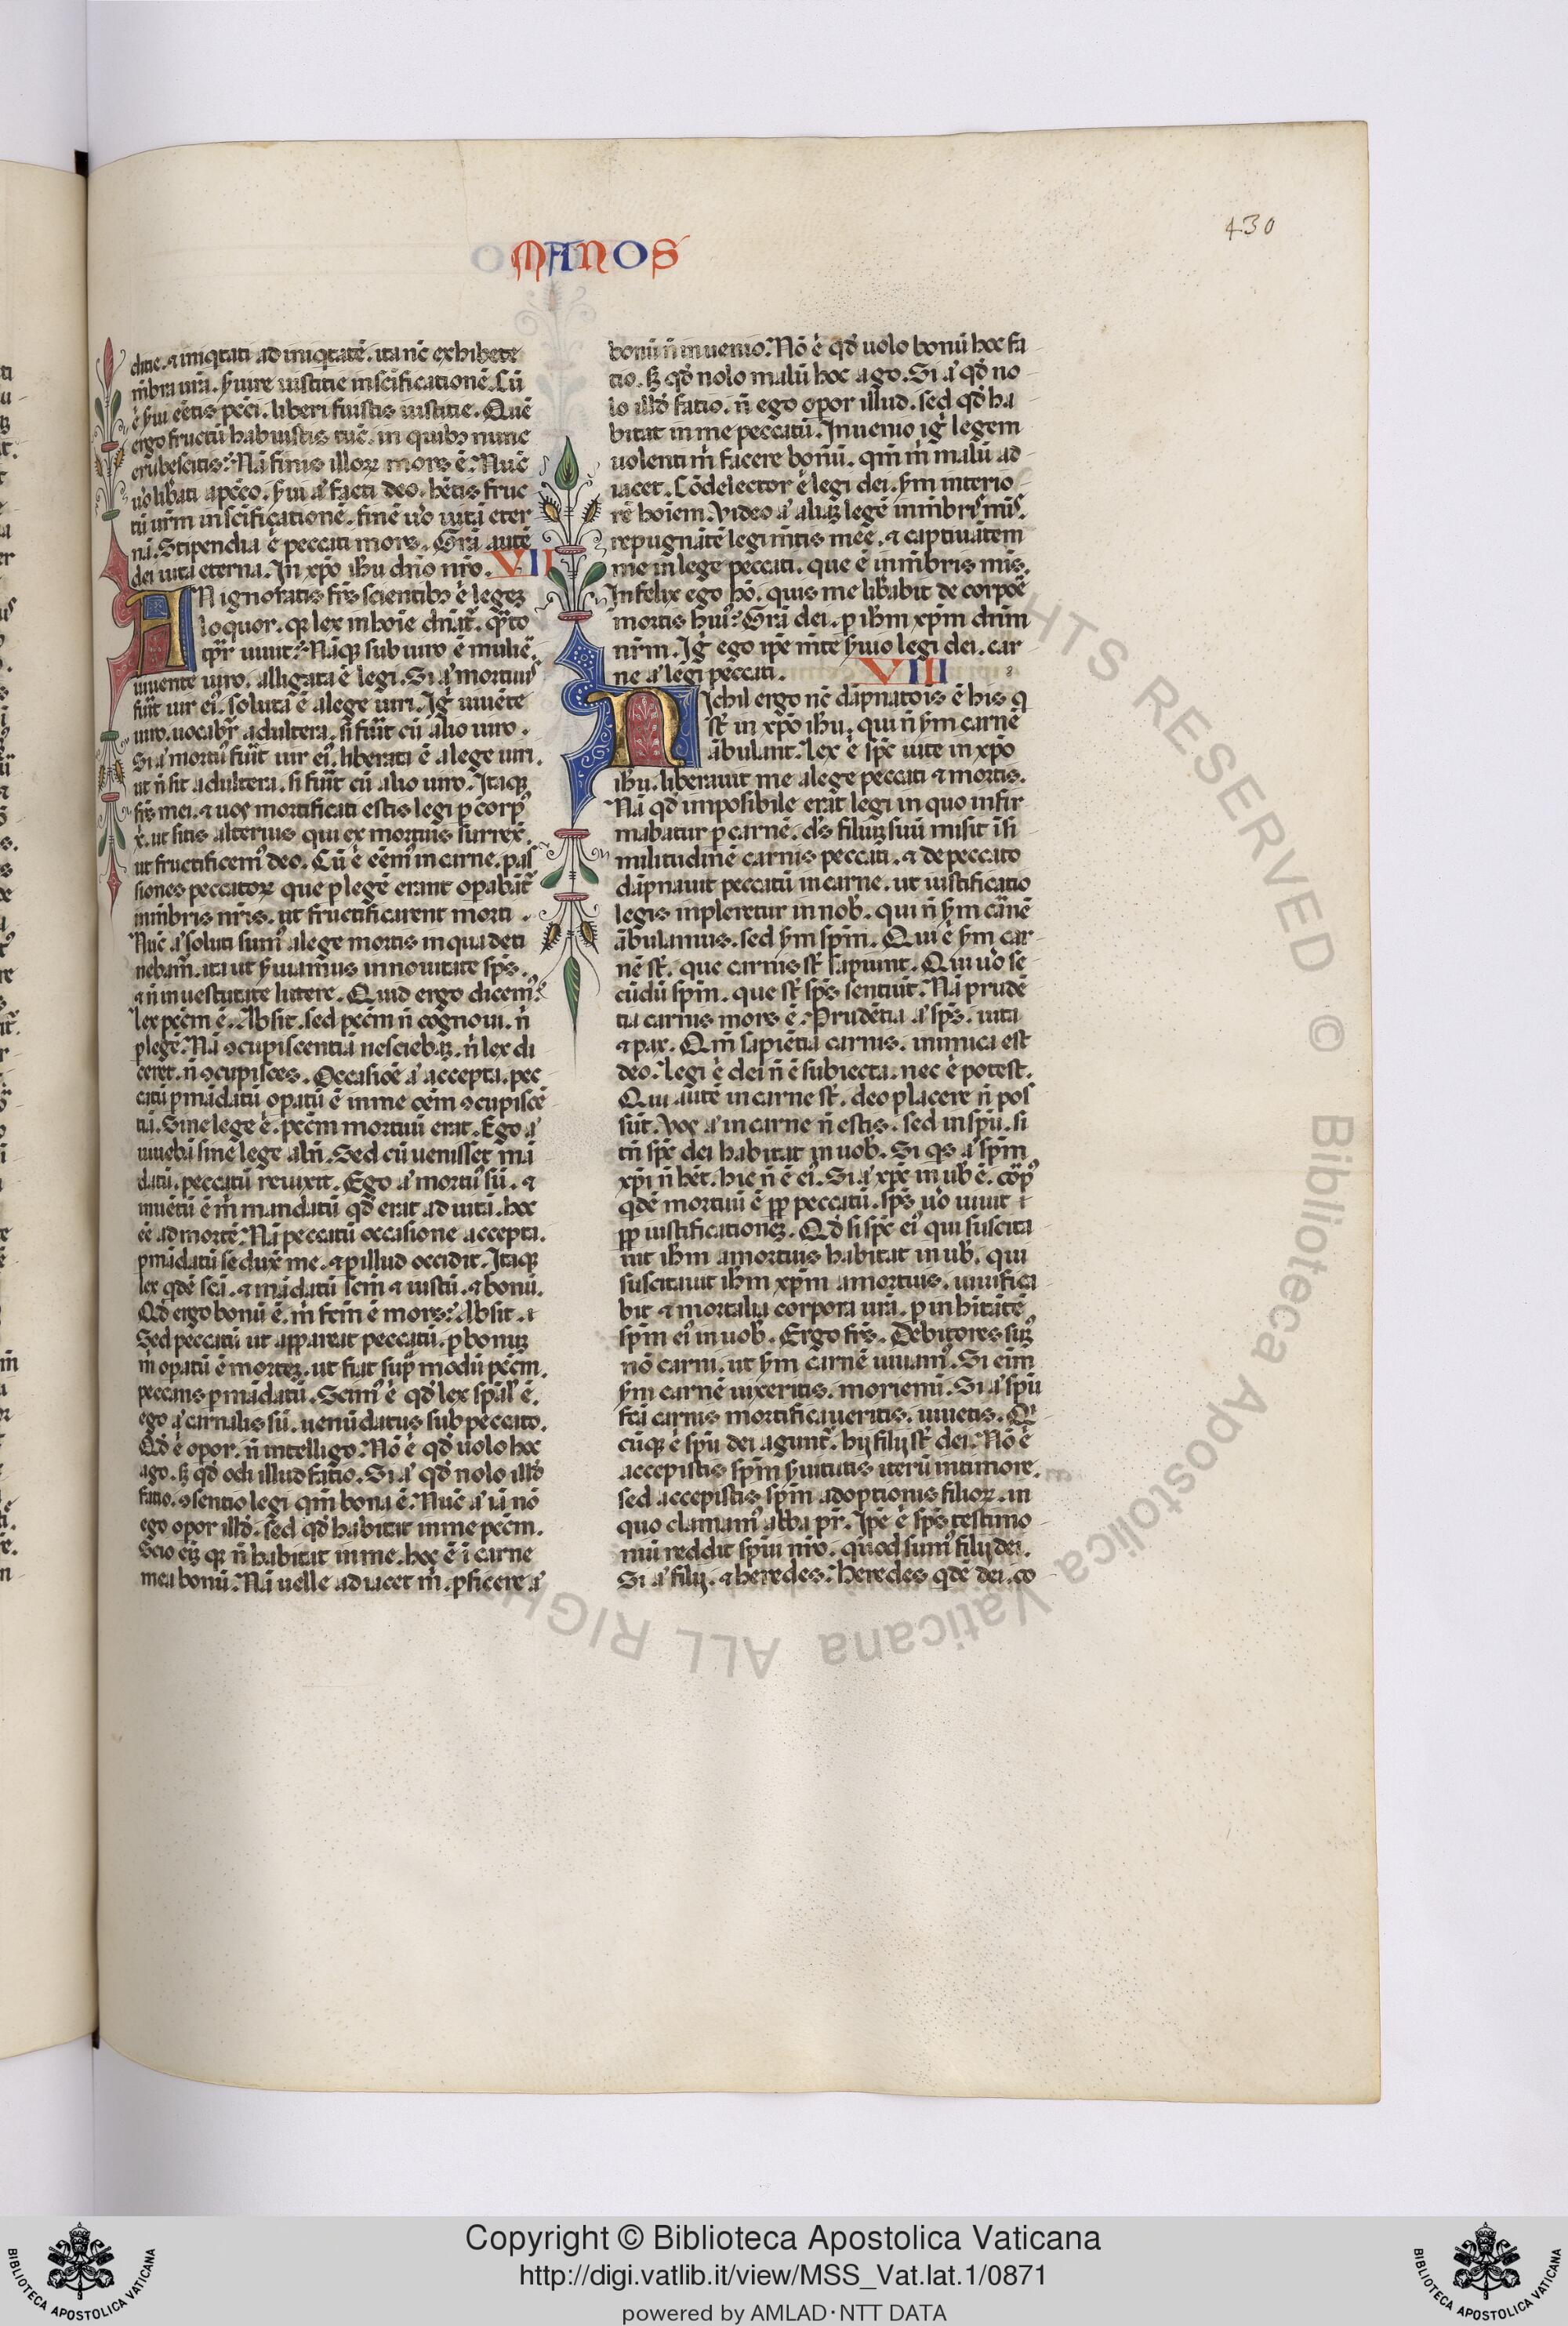 430
MANOS
ditie. ⁊ iniq̇tati ad iniq̇tatē. ita nc̄ exhibete
mēbra urā. ẜuire iustitie in sc̄ificationē. Cū
ē ẜui eētis pc̄ci. liberi fuistis iustitie. Quē
ergo fructū habuistis tūc. in quibꝫ nunc
erubescitis? Nā finis illoꝝ mors ē. Nūc
u̇o lib̄ati a pc̄co. ẜui aͭ facti deo. hētis fruc
tū urm̄ in sc̄ificationē. finē u̇o uitā eter
nā. Stipendia ē peccati mors. Grā autē
dei uita eterna. In xp̄o ihū dn̄o nr̄o. VII
AN ignoratis fr̄s scientibꝫ ē legeꝫ
loquor. qꝫ lex in hoīe dn̄at̄. q̄ᷓto
tp̄r uiuit? Nāqꝫ sub uiro ē muliē.
uiuente uiro. alligata ē legi. Si aͭ mortuus
fuīt uir eiꝰ. soluta ē a lege uiri. Ig̊ uiuēte
uiro. uocabr̄ adultera. si fuīt cū alio uiro.
Si aͭ mortuꝰ fuīt uir eiꝰ. liberata ē a lege uiri.
ut n̄ sit adultera. si fuīt cū alio uiro. Itaqꝫ
fr̄s mei. ⁊ uos mortificati estis legi ꝑ corpꝰ
x̄. ut sitis alterius qui ex mortuis surrex̄.
ut fructificemꝰ deo. Cū ē eēmꝰ in carne. pas
siones peccatoꝝ que ꝑ legē erant opabāt̄
in mēbris nr̄is. ut fructificarent morti.
Nūc aͭ soluti sumꝰ a lege mortis in qua deti
nebam̄. ita ut ẜuiamus in nouitate sp̄s.
⁊ n̄ in uestutate littere. Quid ergo dicemꝰ?
lex pc̄cm ē. Absit. sed pc̄cm n̄ cognoui. n̄
ꝑ legē. Nā ꝯcupiscentiā nesciebaꝫ. n̄ lex di
ceret. n̄ ꝯcupisces. Occasiōe aͭ accepta. pec
catū ꝑ mādatū opatū ē in me oēm ꝯcupiscē
tiā. Sine lege ē. pc̄cm mortuū erat. Ego aͭ
uiuebā sine lege aln̄. Sed cū uenisset mā
datū. peccatū reuixit. Ego aͭ mortuꝰ sū. ⁊
inuētū ē m̄ mandatū qd̄ erat ad uitā. hoc
eē ad mortē. Nā peccatū occasione accepta.
ꝑ mādatū seduxē me. ⁊ ꝑ illud occidit. Itaqꝫ
lex qdē scā. ⁊ mādatū scm̄ ⁊ iustū. ⁊ bonū.
Qd̄ ergo bonū ē. m̄ fctm̄ ē mors? Absit.
Sed peccatū ut appareat peccatū. ꝑ bonuꝫ
m̄ opatū ē morteꝫ. ut fiat supꝰ modū pc̄cm.
peccans ꝑ mādatū. Scimꝰ ē qd̄ lex spāl̄ ē.
ego aͭ carnalis sū. uenūdatus sub peccato.
Qd̄ ē opor. n̄ intelligo. Nō ē qd̄ uolo hoc
ago. sꝫ qd̄ odi illud fatio. Si aͭ qd̄ nolo illd̄
fatio. ꝯsentio legi qm̄ bona ē. Nūc aͭ iā nō
ego opor illd̄. sed qd̄ habitat in me pc̄cm.
Scio eīꝫ qꝫ n̄ habitat in me. hoc ē ī carne
mea bonū. Nā uelle adiacet m̄. ꝑficere aͭ
bonū n̄ inuenio. Nō ē qd̄ uolo bonū hoc fa
tio. sꝫ qd̄ nolo malū hoc ago. Si aͭ qd̄ no
lo illd̄ fatio. n̄ ego opor illud. sed qd̄ ha
bitat in me peccatū. Inuenio ig̊ legem
uolenti m̄ facere bonū. qm̄ m̄ malū ad
iacet. Cōdelector ē legi dei. ẜm interio
rē hoīem. Video aͭ aliaꝫ legē in mēbris mīs.
repugnātē legi mētis meē. ⁊ captiuātem
me in lege peccati. que ē in mēbris mis.
Infelix ego hō. quis me lib̄abit de corpoē
mortis huiꝰ? Grā dei. ꝑ ihm̄ xpm̄ dnm̄
nrm̄. Ig̊ ego ip̄e mēte ẜuio legi dei. car
ne aͭ legi peccati. VIII
NIchil ergo nc̄ dāpnatōis ē his q̇
st̄ in xp̄o ihū. qui n̄ ẜm carnē
ābulant. lex ē sp̄s uite in xp̄o
ihū. liberauit me a lege peccati ⁊ mortis.
Nā qd̄ imposibile erat legi in quo infir
mabatur ꝑ carnē. ds̄ filiuꝫ suū misit ī si
militudinē carnis peccati. ⁊ de peccato
dāpnauit peccatū in carne. ut iustificatio
legis inpleretur in nob̄. qui n̄ ẜm cārnē
ābulamus. sed ẜm spm̄. Qui ē ẜm car
nē st̄. que carnis st̄ sapiunt. Qui u̇o se
cūdū spm̄. que st̄ sp̄s sentiūt. Nā prudē
tia carnis mors ē. Prudētia aͭ sp̄s. uita
⁊ pax. Qm̄ sapiētia carnis. inimica est
deo. legi ē dei n̄ ē subiecta. nec ē potest.
Qui autē in carne st̄. deo placere n̄ pos
sūt. Vos aͭ in carne n̄ estis. sed in spū. si
tn̄ sp̄s dei habitat in uob̄. Si qs aͭ spm̄
xpi n̄ hēt. hic n̄ ē eiꝰ. Si aͭ xp̄s in ub̄ ē. cōpꝰ
qdē mortuū ē ꝓp peccatū. sp̄s u̇o uiuit
ꝓp iustificationeꝫ. Qd̄ si sp̄s eiꝰ qui suscita
uit ihm̄ a mortuis habitat in ub̄. qui
suscitauit ihm̄ xpm̄ a mortuis. uiuifica
bit ⁊ mortalia corpora urā. ꝑ inhitātē
spm̄ eiꝰ in uob̄. Ergo fr̄s. Debitores suꝫꝰ
nō carni. ut ẜm carnē uiuamꝰ. Si eīm
ẜm carnē uixeritis. moriemī. Si aͭ spū
fctā carnis mortificaueritis. uiuetis. Q
cūqꝫ ē spū dei agunt̄. hij filij st̄ dei. Nō ē
accepistis spm̄ ẜuitutis iterū in timore.
sed accepistis spm̄ adoptionis filioꝝ. in
quo clamamꝰ abba pr̄. Ipe ē sp̄s testimo
niū reddit spiū nr̄o. quod sumꝰ filij dei.
Si aͭ filij. ⁊ heredes. heredes qdē dei. co
ALL RIGHTS RESERVED © Biblioteca Apostolica Vaticana
BIBLIOTECA APOSTOLICA VATICANA
Copyright © Biblioteca Apostolica Vaticana
http://digi.vatlib.it/view/MSS_Vat.lat.1/0871
powered by AMLAD·NTT DATA
BIBLIOTECA APOSTOLICA VATICANA